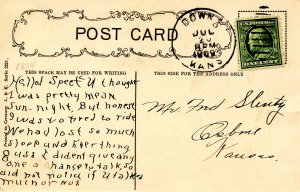 DOWNS
JUL
PM
KANS
POST CARD
THIS SPACE MAY BE USED FOR WRITING
THIS SIDE FOR THE ADDRESS ONLY
Hello Spect U thought
I was pretty mean
Sun. night, But honest
I was so tired to ride
We had lost so much
sleep and Everything
Guess U dident give any
one a chance to talk, so
did not notice if U talked
much or not
Mr Fred
Osborne
Kansas.